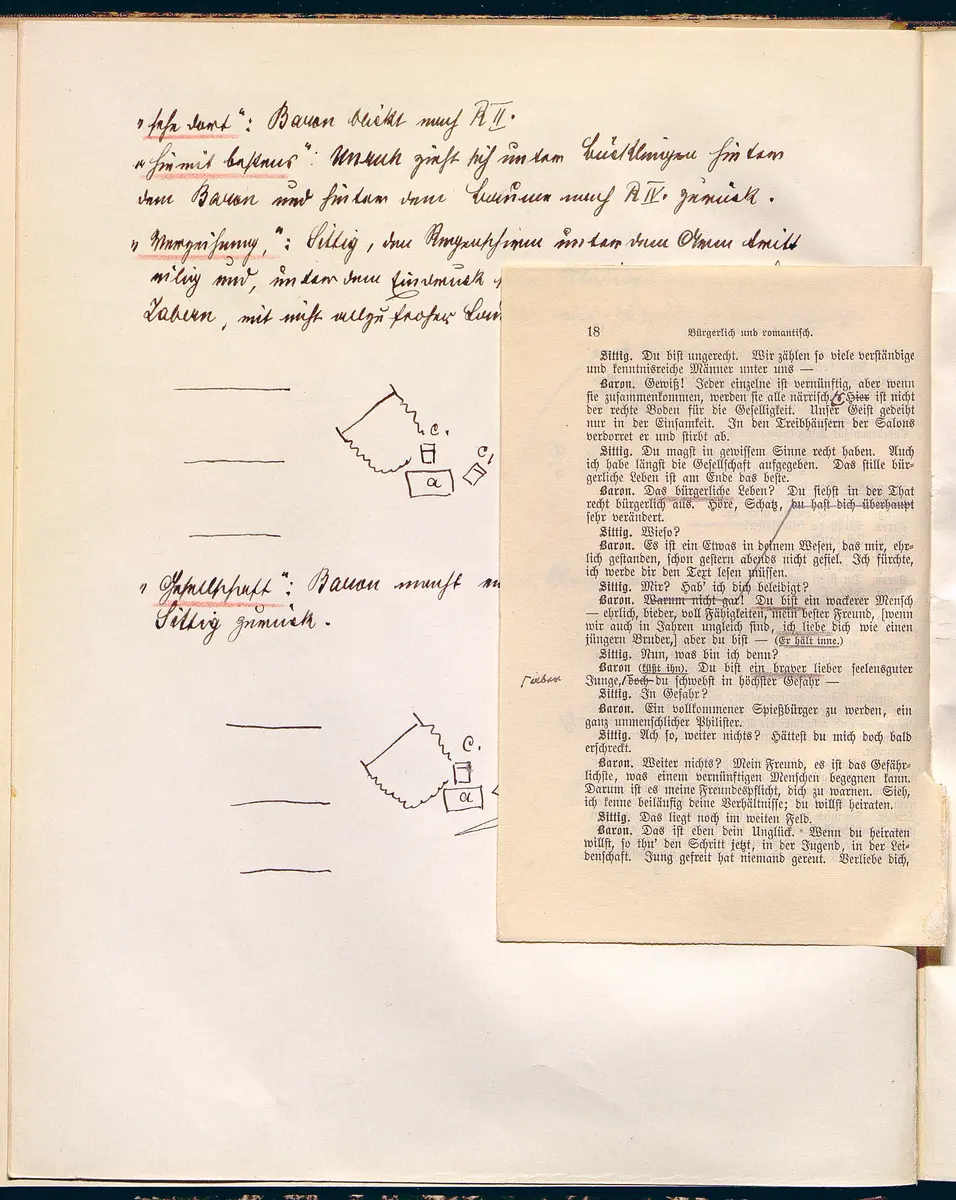 „sehe dort“: Baron blickt nach R II.
„hiermit bestens“: Unruh zieht sich unter Bücklingen hinter
dem Baron und hinter dem Baume nach R IV. zurück.
„Verzeihung,“: Sittig, den Regenschirm unter dem Arm tritt
eilig und, unter dem Eindruck
Zabern, mit nicht allzu froher
C.
C.
a
„Gesellschaft“: Baron macht
Sittig zurück.
C.
a
18 Bürgerlich und romantisch.
Sittig. Du bist ungerecht. Wir zählen so viele verständige
und kenntnisreiche Männer unter uns —
Baron. Gewiß! Jeder einzelne ist vernünftig, aber wenn
sie zusammenkommen, werden sie alle närrisch. Hier ist nicht
der rechte Boden für die Geselligkeit. Unser Geist gedeiht
nur in der Einsamkeit. In den Treibhäusern der Salons
verdorret er und stirbt ab.
Sittig. Du magst in gewissem Sinne recht haben. Auch
ich habe längst die Gesellschaft aufgegeben. Das stille bür-
gerliche Leben ist am Ende das beste.
Baron. Das bürgerliche Leben? Du siehst in der That
recht bürgerlich aus. Höre, Schatz, du hast dich überhaupt
sehr verändert.
Sittig. Wieso?
Baron. Es ist ein Etwas in deinem Wesen, das mir, ehr-
lich gestanden, schon gestern abends nicht gefiel. Ich fürchte,
ich werde dir den Text lesen müssen.
Sittig. Mir? Hab' ich dich beleidigt?
Baron. Warum nicht gar! Du bist ein wackerer Mensch
— ehrlich, bieder, voll Fähigkeiten, mein bester Freund, [wenn
wir auch in Jahren ungleich sind, ich liebe dich wie einen
jüngern Bruder,] aber du bist — (Er hält inne.)
Sittig. Nun, was bin ich denn?
Baron (küßt ihn). Du bist ein braver lieber seelensguter
aber
Junge, doch du schwebst in höchster Gefahr —
Sittig. In Gefahr?
Baron. Ein vollkommener Spießbürger zu werden, ein
ganz unmenschlicher Philister.
Sittig. Ach so, weiter nichts? Hättest du mich doch bald
erschreckt.
Baron. Weiter nichts? Mein Freund, es ist das Gefähr-
lichste, was einem vernünftigen Menschen begegnen kann.
Darum ist es meine Freundespflicht, dich zu warnen. Sieh,
ich kenne beiläufig deine Verhältnisse; du willst heiraten.
Sittig. Das liegt noch im weiten Feld.
Baron. Das ist eben dein Unglück. Wenn du heiraten
willst, so thu' den Schritt jetzt, in der Jugend, in der Lei-
denschaft. Jung gefreit hat niemand gereut. Verliebe dich,